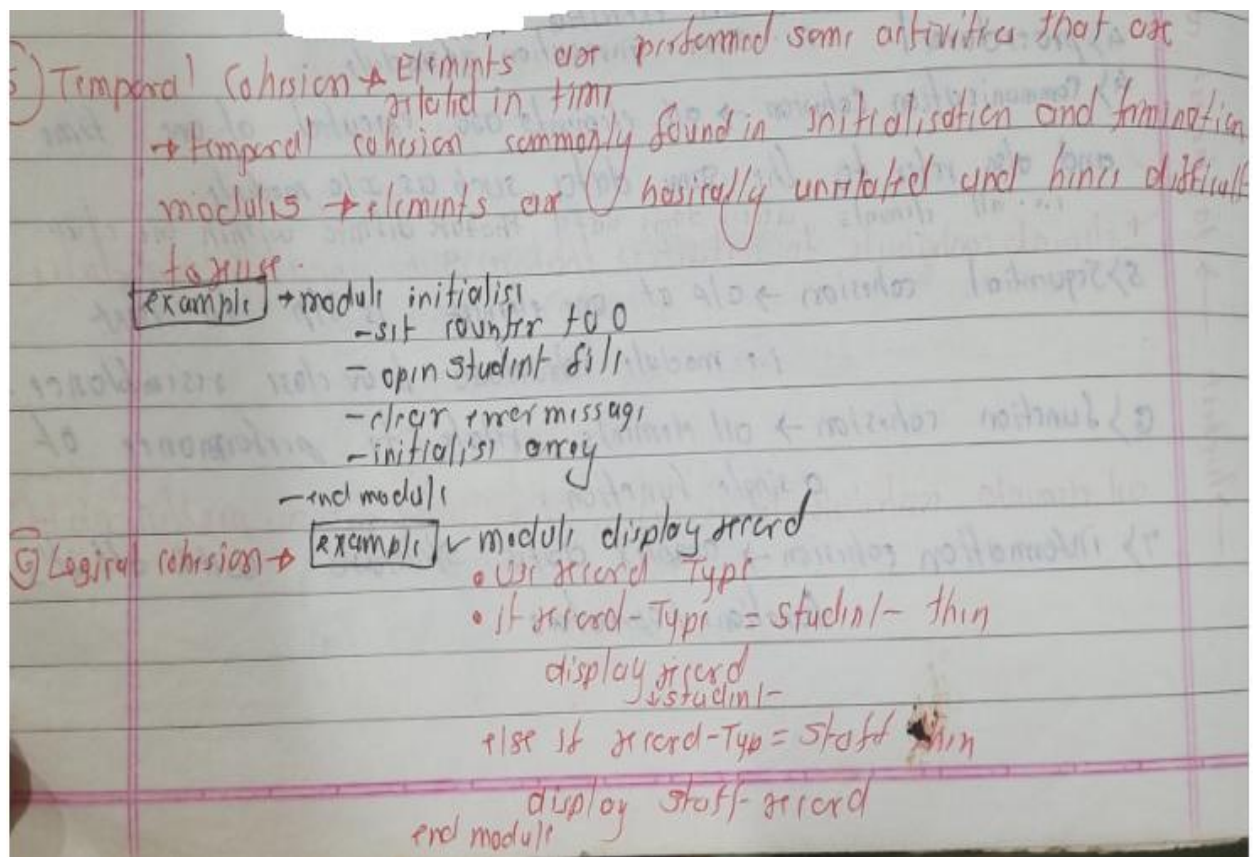 5) Temporal Cohesion → Elements are performed some activities that are
related in time
→ temporal cohesion commonly found in initialisation and termination
modules → elements are basically unrelated and hence difficult
to reuse.
example → module initialise
- set counter to 0
- open student file
- clear error message
- initialise array
- end module
6) Logical cohesion → example ✓ module display record
• use record Type
• if record-Type = student then
display record
↓ student
else if record-Typ = staff then
display staff-record
end module